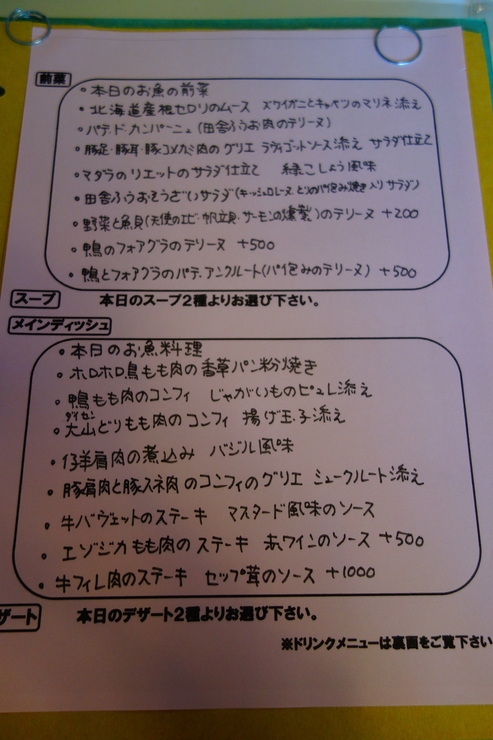 前菜
・本日のお魚の前菜
・北海道産根セロリのムース ズワイガニとキャベツのマリネ添え
・パテ・ド・カンパーニュ(田舎ふうお肉のテリーヌ)
・豚足・豚耳・豚コメカミ肉のグリエ ラヴィゴットソース添え サラダ仕立て
・マダラのリエットのサラダ仕立て 緑こしょう風味
・田舎ふうおそうざいサラダ(キッシュロレーヌ とりのパイ包み焼き入りサラダ)
・野菜と魚貝(天使のエビ・帆立貝・サーモンの燻製)のテリーヌ +200
・鴨のフォアグラのテリーヌ +500
・鴨とフォアグラのパテ・アンクルート(パイ包みのテリーヌ) +500
スープ 本日のスープ2種よりお選び下さい。
メインディッシュ
・本日のお魚料理
・ホロホロ鳥もも肉の香草パン粉焼き
・鴨もも肉のコンフィ じゃがいものピュレ添え
ダイセン
・大山どりもも肉のコンフィ 揚げ玉子添え
・仔羊肩肉の煮込み バジル風味
・豚肩肉と豚スネ肉のコンフィのグリエ シュークルート添え
・牛バヴェットのステーキ マスタード風味のソース
・エゾジカもも肉のステーキ 赤ワインのソース +500
・牛フィレ肉のステーキ セップ茸のソース +1000
ザート 本日のデザート2種よりお選び下さい。
※ドリンクメニューは裏面をご覧下さい